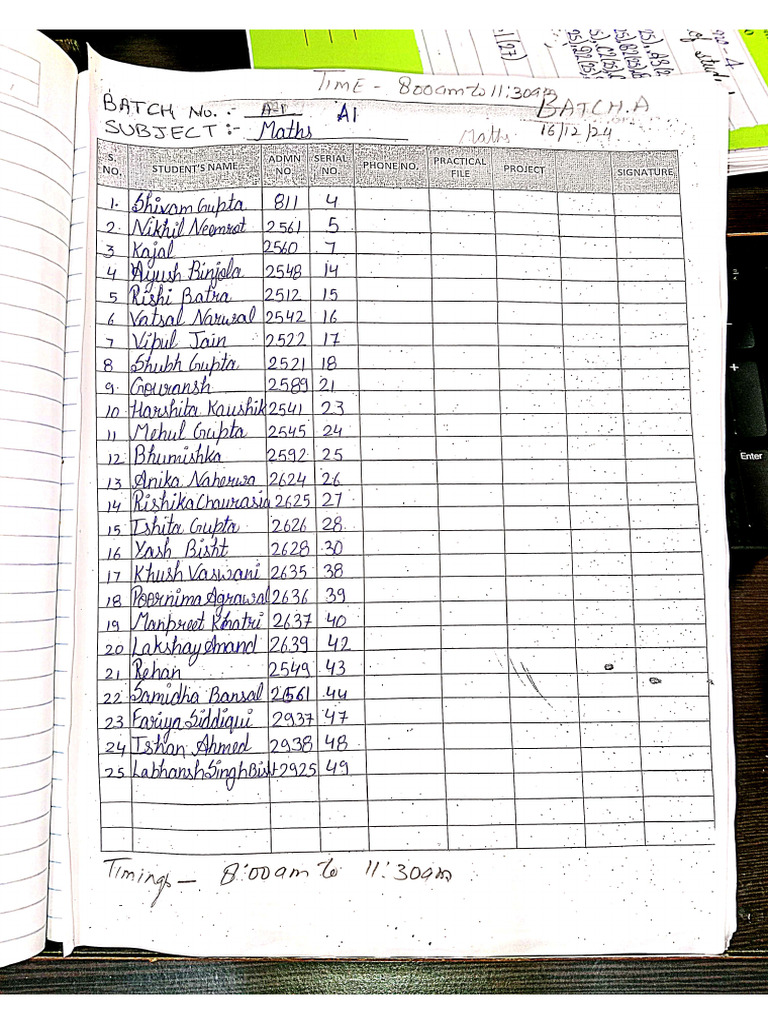 TIME - 8:00am to 11:30am
BATCH No. :- A-1 A1 BATCH.A
SUBJECT :- Maths Maths 16/12/24
S. NO. STUDENT'S NAME ADMN NO. SERIAL NO. PHONE NO. PRACTICAL FILE PROJECT SIGNATURE
1. Shivam Gupta 811 4
2. Nikhil Neemrot 2561 5
3 Kajal 2560 7
4 Ayush Binjola 2548 14
5 Rishi Batra 2512 15
6 Vatsal Narwal 2542 16
7 Vipul Jain 2522 17
8 Shubh Gupta 2521 18
9. Gouransh 2589 21
10 Harshita Kaushik 2541 23
11 Mehul Gupta 2545 24
12 Bhumishka 2592 25
13 Anika Naherwa 2624 26
14 Rishika Chaurasia 2625 27
15 Ishita Gupta 2626 28
16 Yash Bisht 2628 30
17 Khush Vaswani 2635 38
18 Poernima Agrawal 2636 39
19 Manpreet Khatri 2637 40
20 Lakshay Anand 2639 42
21 Rehan 2549 43
22 Samidha Bansal 2561 44
23 Fariya Siddiqui 2937 47
24 Ishan Ahmed 2938 48
25 Labhansh Singh Bist 2925 49
Timings - 8:00am to 11:30am
Enter